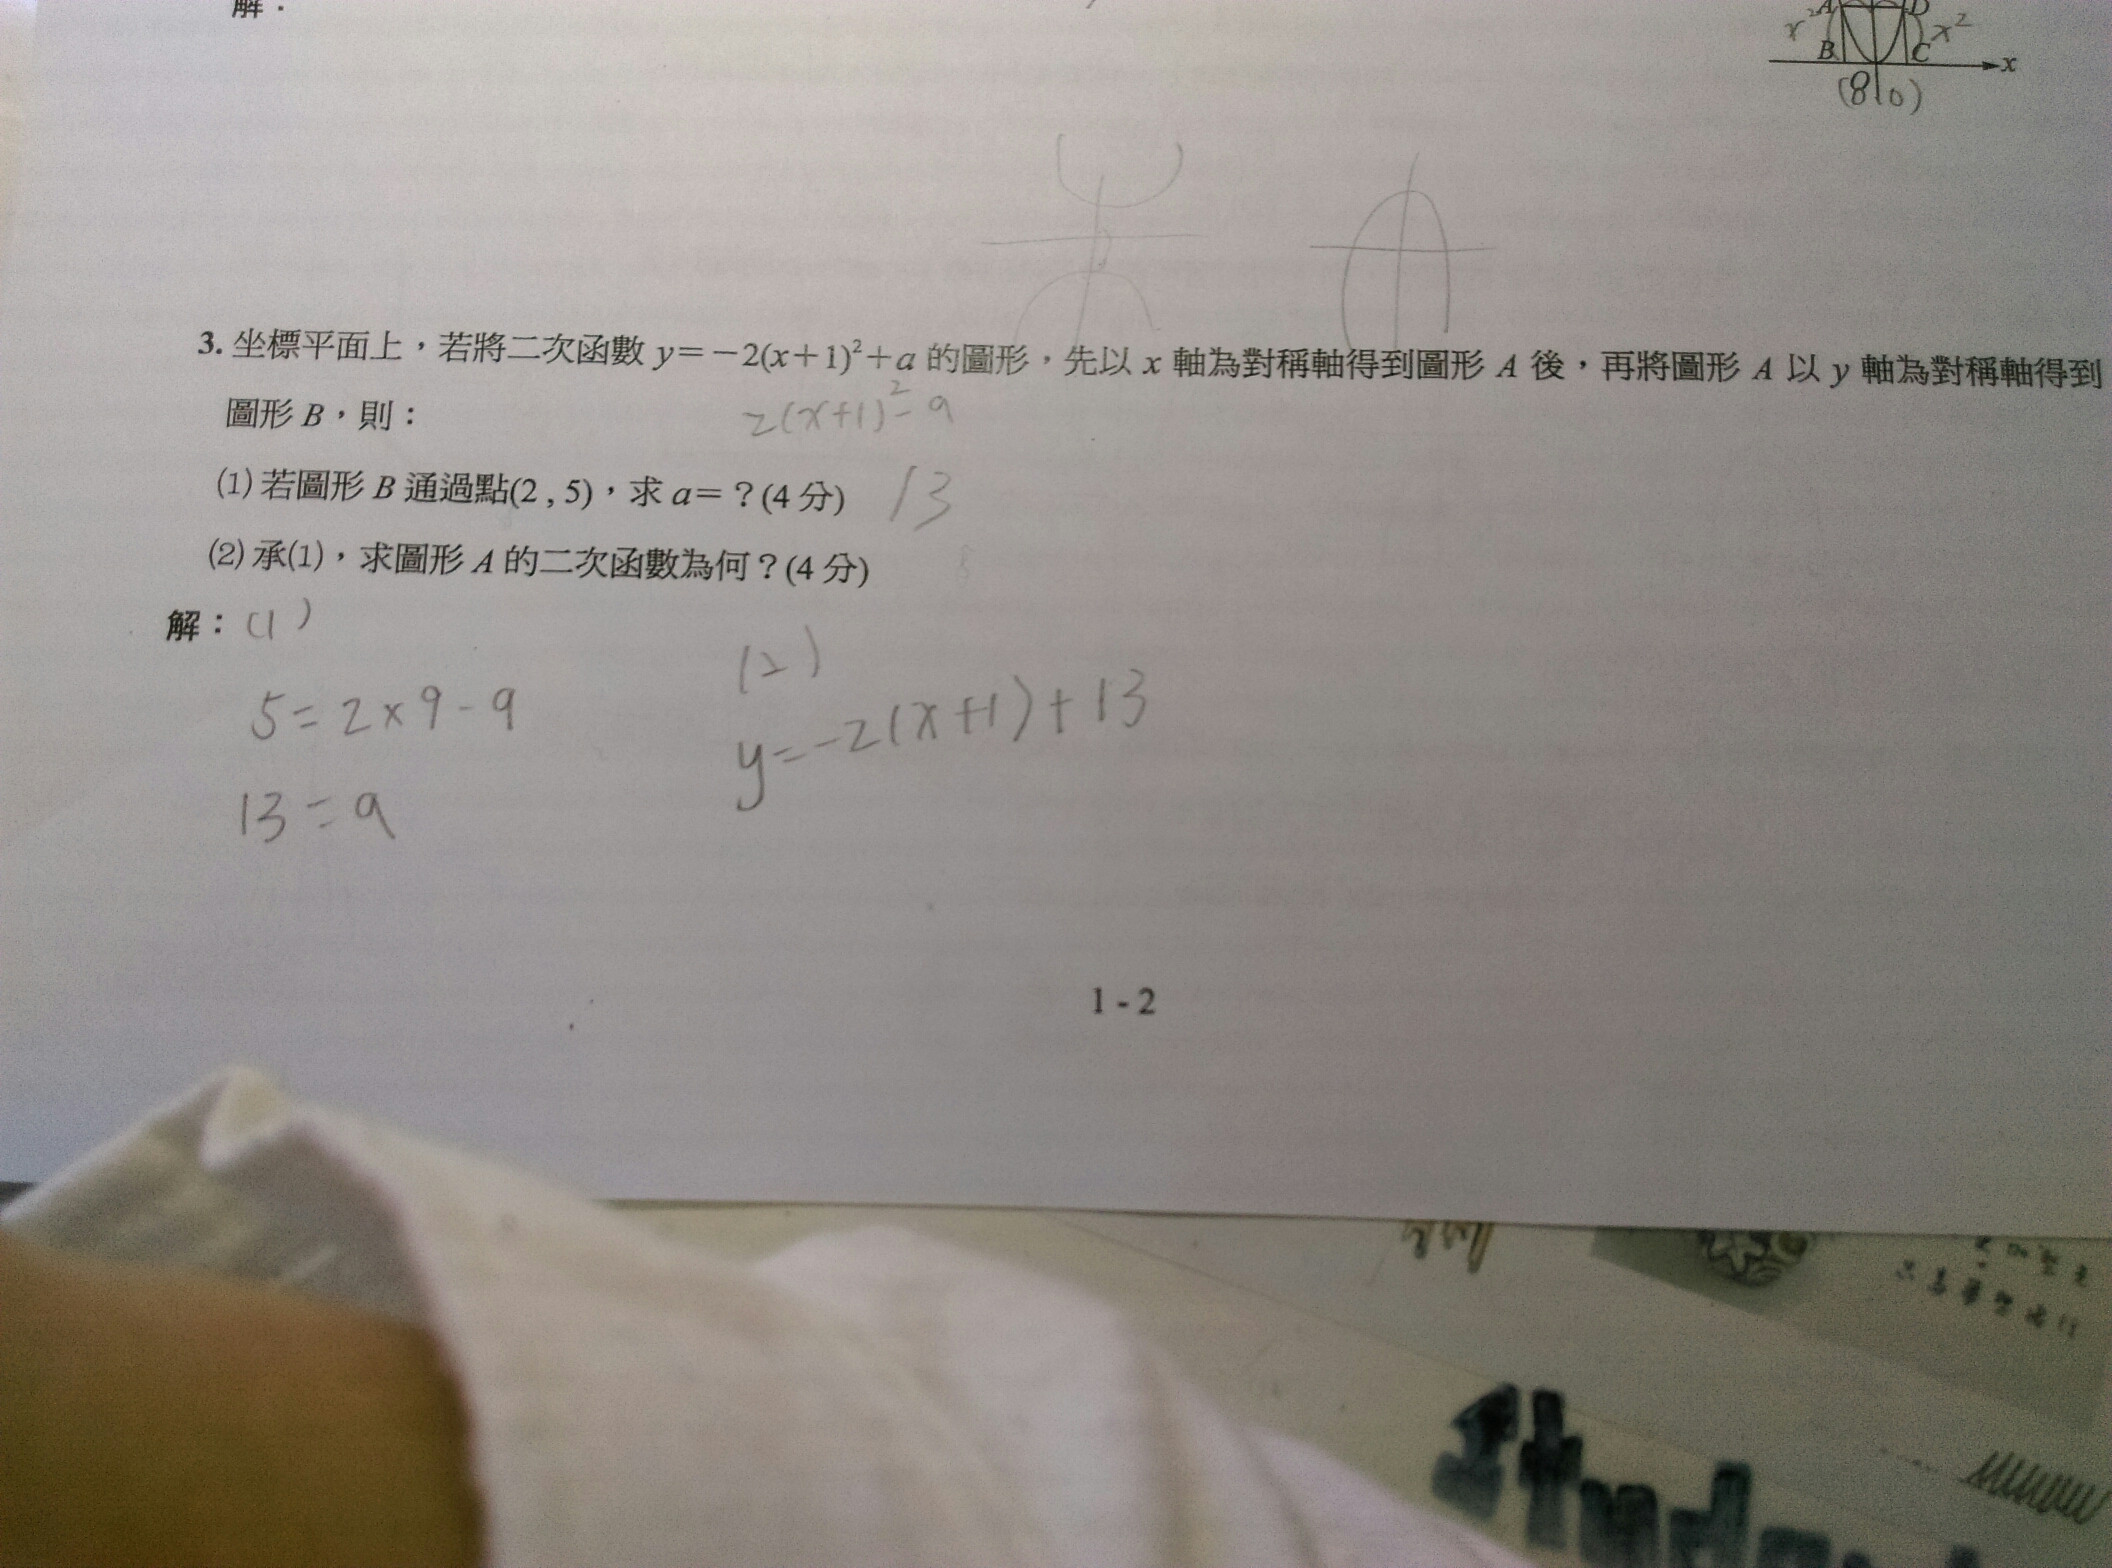 解：
A D
x² x²
B C x
(8,0)
3. 坐標平面上，若將二次函數 y=－2(x+1)²+a 的圖形，先以 x 軸為對稱軸得到圖形 A 後，再將圖形 A 以 y 軸為對稱軸得到
圖形 B，則：
2(x+1)²-a
(1) 若圖形 B 通過點(2 , 5)，求 a=？(4 分) 13
(2) 承(1)，求圖形 A 的二次函數為何？(4 分)
解： (1)
(2)
5=2×9-a
y=-2(x+1)+13
13=a
1 - 2